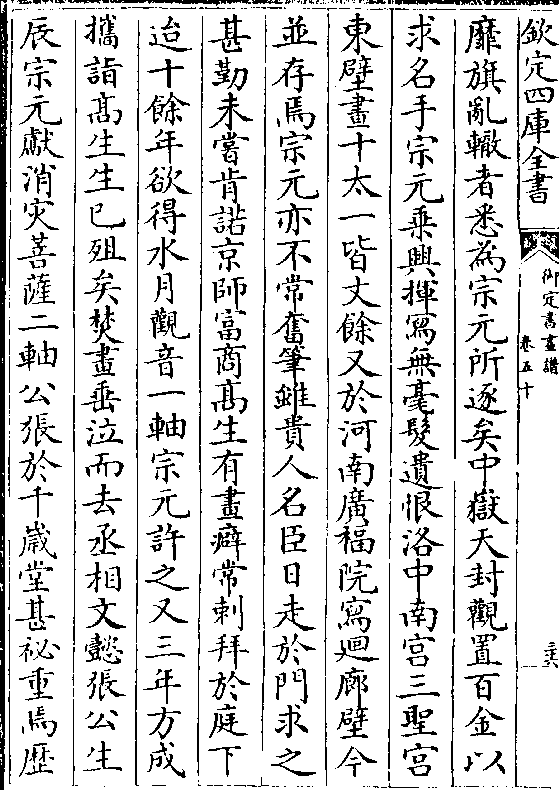 欽定四庫全書
御定書畫譜
卷五十
三六
靡旗亂轍者悉為宗元所逐矣中嶽天封觀置百金以
求名手宗元乗興揮寫無毫髮遺恨洛中南宫三聖宫
東壁畫十太一皆丈餘又於河南廣福院寫廻廊壁今
並存焉宗元亦不常奮筆雖貴人名臣日走於門求之
甚勤未嘗肯諾京師富商髙生有畫癖常刺拜於庭下
迨十餘年欲得水月觀音一軸宗元許之又三年方成
攜詣髙生生已殂矣焚畫垂泣而去丞相文懿張公生
辰宗元獻消災菩薩二軸公張於千嵗堂甚祕重焉歴